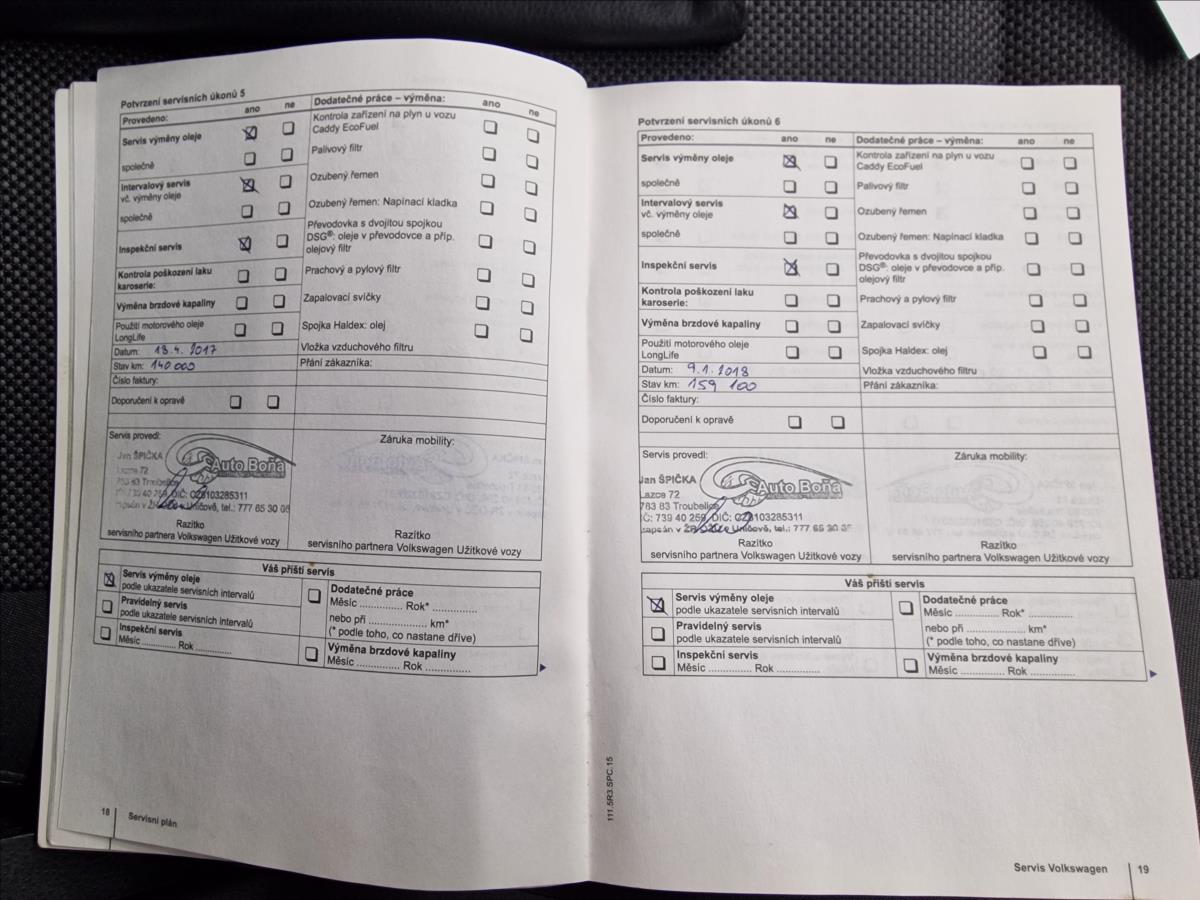 Potvrzení servisních úkonů 5
Provedeno: ano ne Dodatečné práce – výměna: ano ne
Servis výměny oleje
společně
Intervalový servis
vč. výměny oleje
společně
Inspekční servis
Kontrola poškození laku
karoserie:
Výměna brzdové kapaliny
Použití motorového oleje
LongLife
Datum: 18.4.2017
Stav km: 140 000
Číslo faktury:
Doporučení k opravě
Kontrola zařízení na plyn u vozu
Caddy EcoFuel
Palivový filtr
Ozubený řemen
Ozubený řemen: Napínací kladka
Převodovka s dvojitou spojkou
DSG®: oleje v převodovce a příp.
olejový filtr
Prachový a pylový filtr
Zapalovací svíčky
Spojka Haldex: olej
Vložka vzduchového filtru
Přání zákazníka:
Servis provedl:
Jan ŠPIČKA
Auto Boňa
Lazce 72
DIČ: CZ8103285311
Uničově, tel.: 777 65 30
Razítko
servisního partnera Volkswagen Užitkové vozy
Záruka mobility:
Razítko
servisního partnera Volkswagen Užitkové vozy
Váš příští servis
Servis výměny oleje
podle ukazatele servisních intervalů
Pravidelný servis
podle ukazatele servisních intervalů
Inspekční servis
Měsíc .............. Rok ..............
Dodatečné práce
Měsíc .............. Rok* ..............
nebo při .................... km*
(* podle toho, co nastane dříve)
Výměna brzdové kapaliny
Měsíc .............. Rok ..............
18
Servisní plán
Potvrzení servisních úkonů 6
Provedeno: ano ne Dodatečné práce – výměna: ano ne
Servis výměny oleje
společně
Intervalový servis
vč. výměny oleje
společně
Inspekční servis
Kontrola poškození laku
karoserie:
Výměna brzdové kapaliny
Použití motorového oleje
LongLife
Datum: 9.1.2018
Stav km: 159 100
Číslo faktury:
Doporučení k opravě
Kontrola zařízení na plyn u vozu
Caddy EcoFuel
Palivový filtr
Ozubený řemen
Ozubený řemen: Napínací kladka
Převodovka s dvojitou spojkou
DSG®: oleje v převodovce a příp.
olejový filtr
Prachový a pylový filtr
Zapalovací svíčky
Spojka Haldex: olej
Vložka vzduchového filtru
Přání zákazníka:
Servis provedl:
Jan ŠPIČKA
Auto Boňa
Lazce 72
783 83 Troubelice
IČ: 739 40 259, DIČ: CZ8103285311
Uničově, tel.: 777 65 30
Razítko
servisního partnera Volkswagen Užitkové vozy
Záruka mobility:
Razítko
servisního partnera Volkswagen Užitkové vozy
Váš příští servis
Servis výměny oleje
podle ukazatele servisních intervalů
Pravidelný servis
podle ukazatele servisních intervalů
Inspekční servis
Měsíc .............. Rok ..............
Dodatečné práce
Měsíc .............. Rok* ..............
nebo při .................... km*
(* podle toho, co nastane dříve)
Výměna brzdové kapaliny
Měsíc .............. Rok ..............
111.5R3.SPC.15
Servis Volkswagen 19